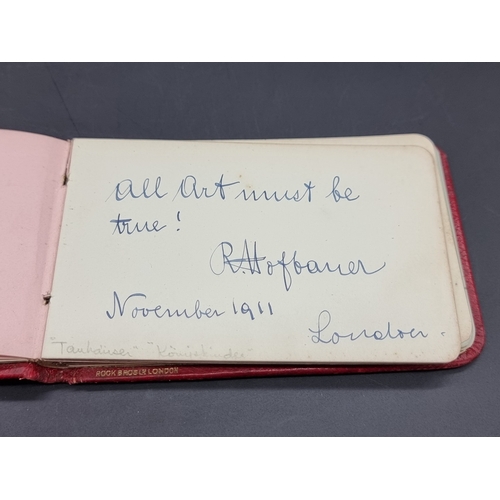 All Art must be
true!
R. Hofbauer
November 1911
London.
"Tanhäuser" "Königskinder"
ROOK BROS LONDON